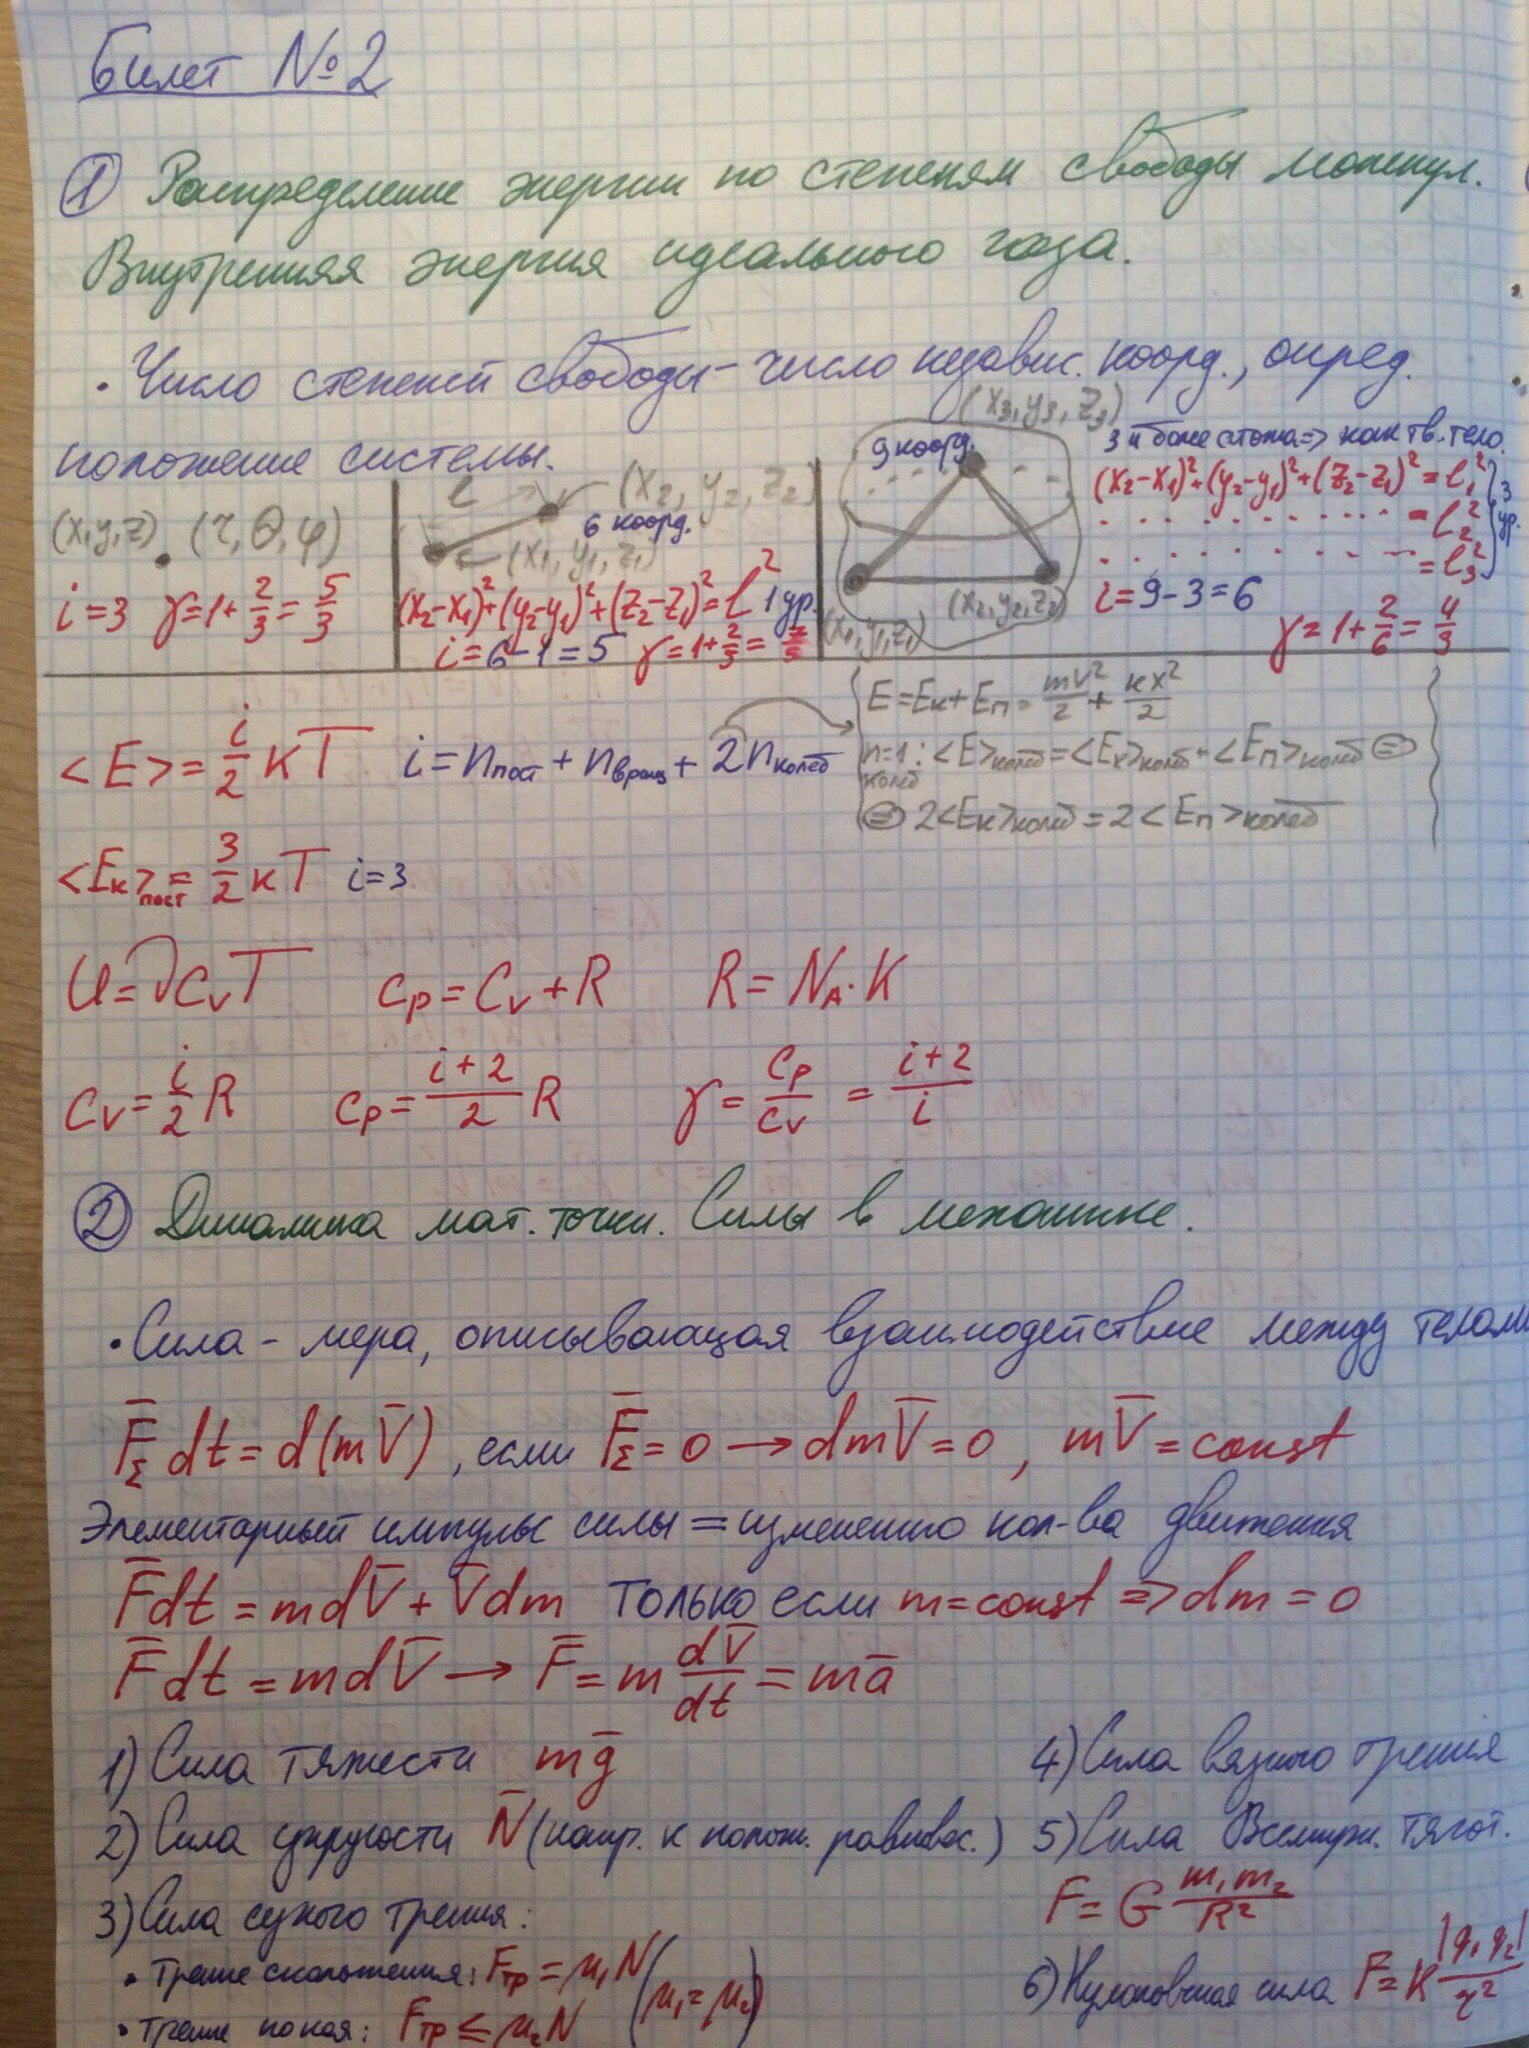 Билет №2
① Распределение энергии по степеням свободы молекул.
Внутренняя энергия идеального газа.
• Число степеней свободы – число независ. коорд., опред.
положение системы.
(x,y,z) (r,θ,φ)
i=3 γ=1+2/3=5/3
l (x₂,y₂,z₂)
6 коорд.
(x₁,y₁,z₁)
(x₂-x₁)²+(y₂-y₁)²+(z₂-z₁)²=l² 1 ур.
i=6-1=5 γ=1+2/5=7/5
(x₃,y₃,z₃)
9 коорд.
(x₂,y₂,z₂)
(x₁,y₁,z₁)
3 и более атома => как тв. тело.
(x₂-x₁)²+(y₂-y₁)²+(z₂-z₁)²=l₁² } 3 ур.
. . . . . . . . . . . =l₂²
. . . . . . . . . . . =l₃²
i=9-3=6
γ=1+2/6=4/3
<E>=i/2 kT i=nпост+nвращ+2nколеб
E=Eк+Eп=mv²/2+kx²/2
n=1: <E>колеб=<Eк>колеб+<Eп>колеб ⊜
колеб
⊜ 2<Eк>колеб=2<Eп>колеб
<Eк>пост=3/2 kT i=3
U=νcᵥT cₚ=cᵥ+R R=N_A·K
cᵥ=i/2 R cₚ=(i+2)/2 R γ=cₚ/cᵥ=(i+2)/i
② Динамика мат. точки. Силы в механике.
• Сила – мера, описывающая взаимодействие между телами
F̄_Σ dt=d(mV̄), если F̄_Σ=0→dmV̄=0, mV̄=const
Элементарный импульс силы = изменению кол-ва движения
F̄dt=mdV̄+V̄dm только если m=const => dm=0
F̄dt=mdV̄→F̄=m dV̄/dt=mā
1) Сила тяжести mḡ
2) Сила упругости N̄ (напр. к полож. равновес.)
3) Сила сухого трения:
• Трение скольжения: Fтр=μ₁N
• Трение покоя: Fтр≤μ₂N
(μ₁=μ₂)
4) Сила вязкого трения
5) Сила Всемирн. тягот.
F=G m₁m₂/R²
6) Кулоновская сила F=k |q₁q₂|/r²